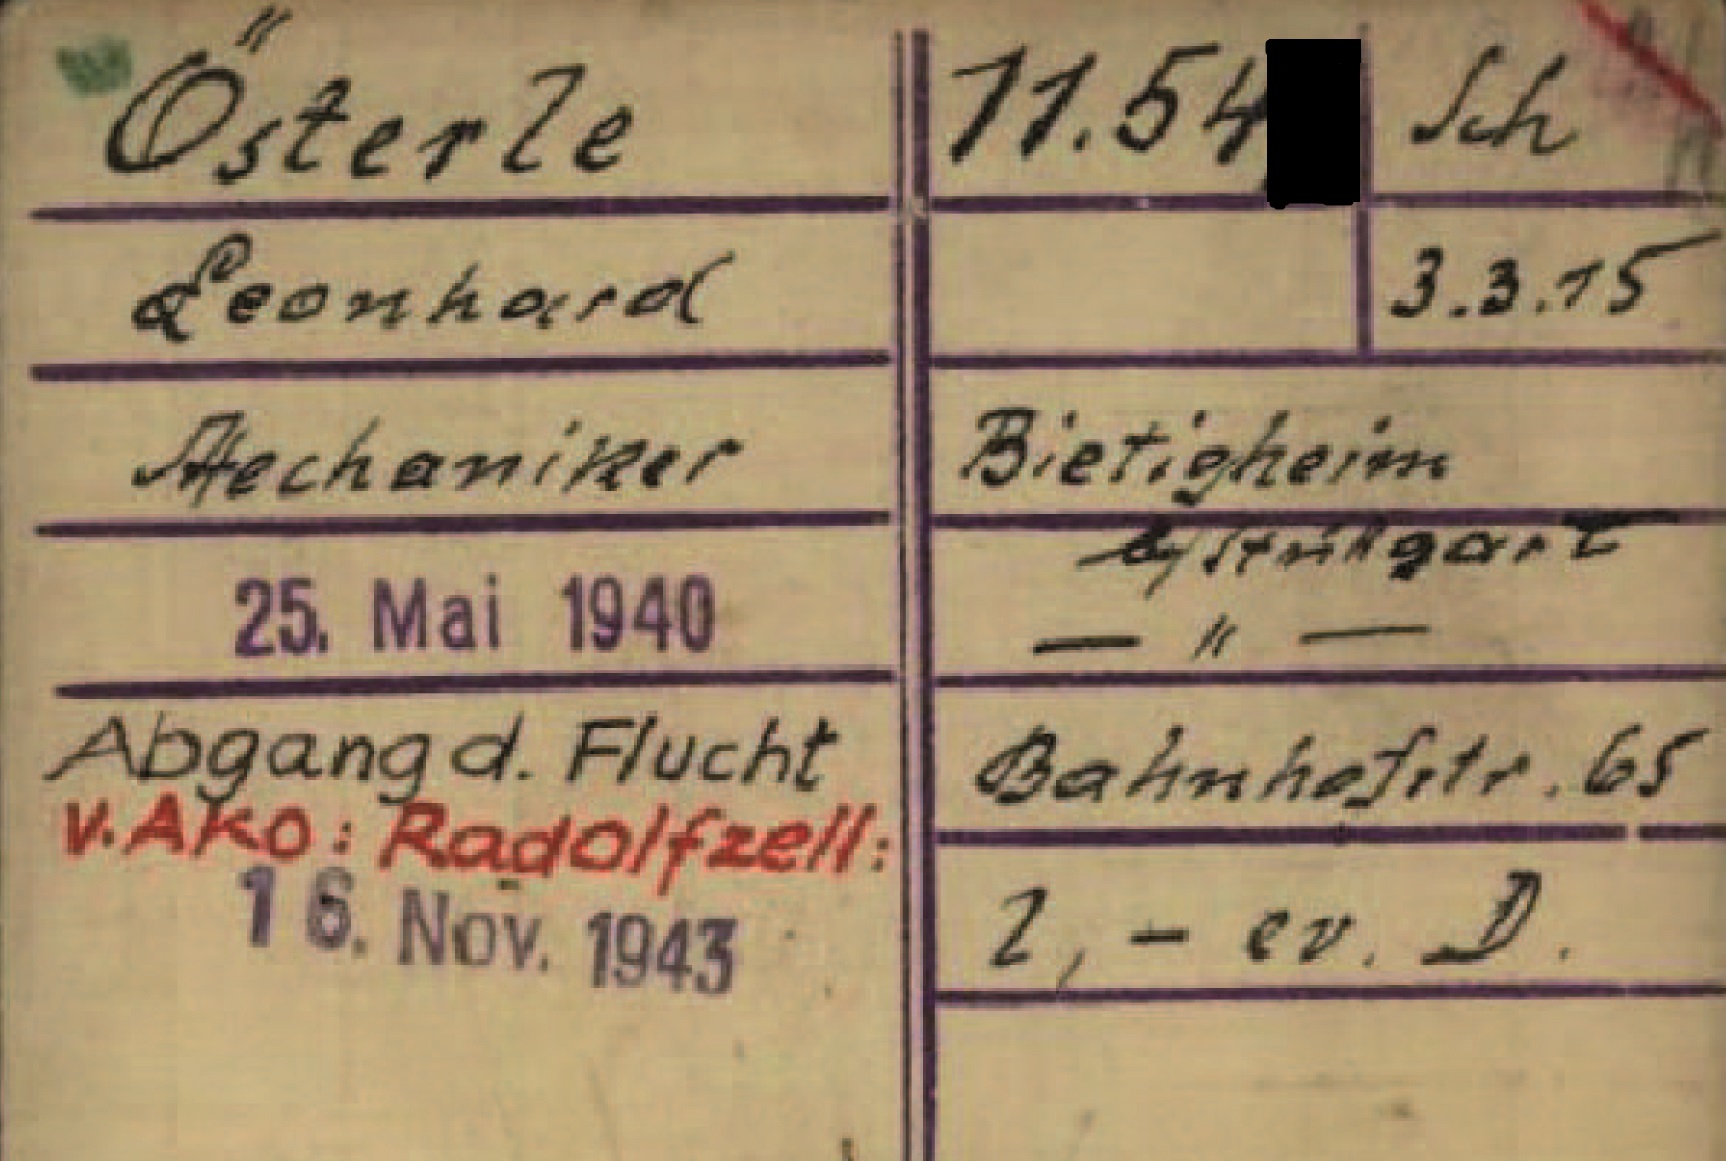 Österle
11.54
Sch
Leonhard
3.3.15
Mechaniker
Bietigheim
b/Stuttgart
25. Mai 1940
— " —
Abgang d. Flucht
v. Ako: Radolfzell:
16. Nov. 1943
Bahnhofstr. 65
2, - ev. D.